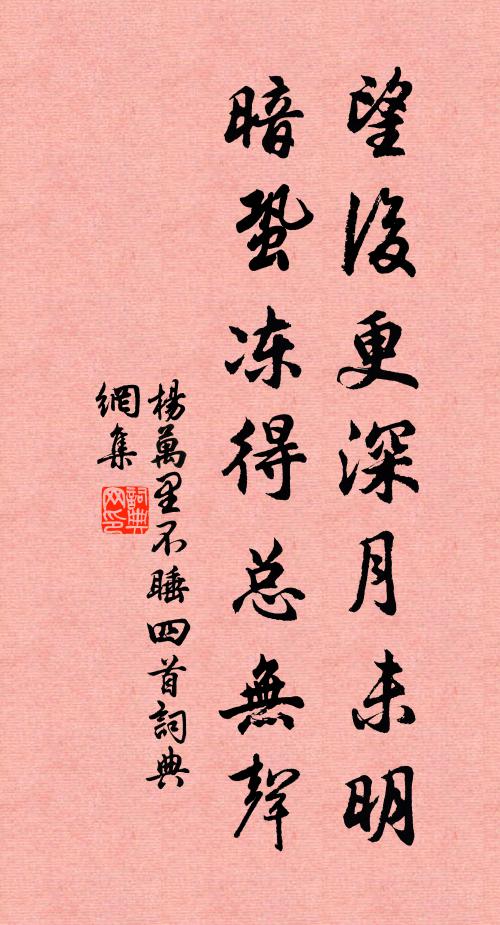 望後更深月未明
暗蛩冻得总無聲
楊萬里不睡四首詞典
網集
詞典网印